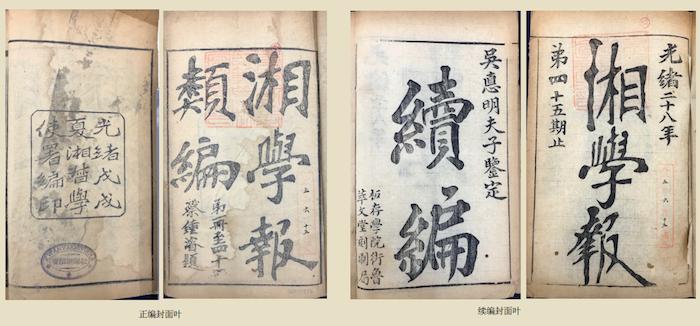 光緒戊戌
夏湘督學
使署編印
湘學報
類編
蔡鍾濬題
正编封面叶
吳惠明夫子鑒定
續編
板存學院街魯
萃文堂刻刷局
光緒二十八年
湘學報
第四十五期止
续编封面叶